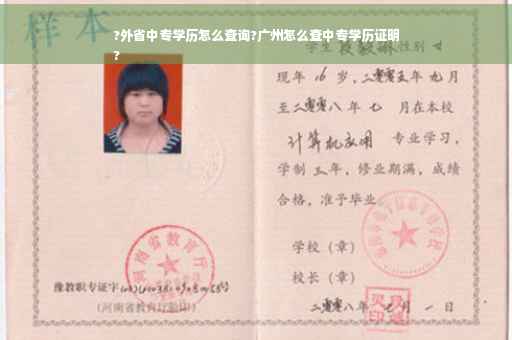 样本
?外省中专学历怎么查询?广州怎么查中专学历证明
?
学生 性别 女
现年 16 岁，二零零五年 九月
至二零零八年 七 月在本校
计算机应用 专业学习，
学制 三年，修业期满，成绩
合格，准予毕业
学校（章）
校长（章）
二零零八年 月 一 日
河南省教育厅
豫教职专证字
（河南省教育厅验印）